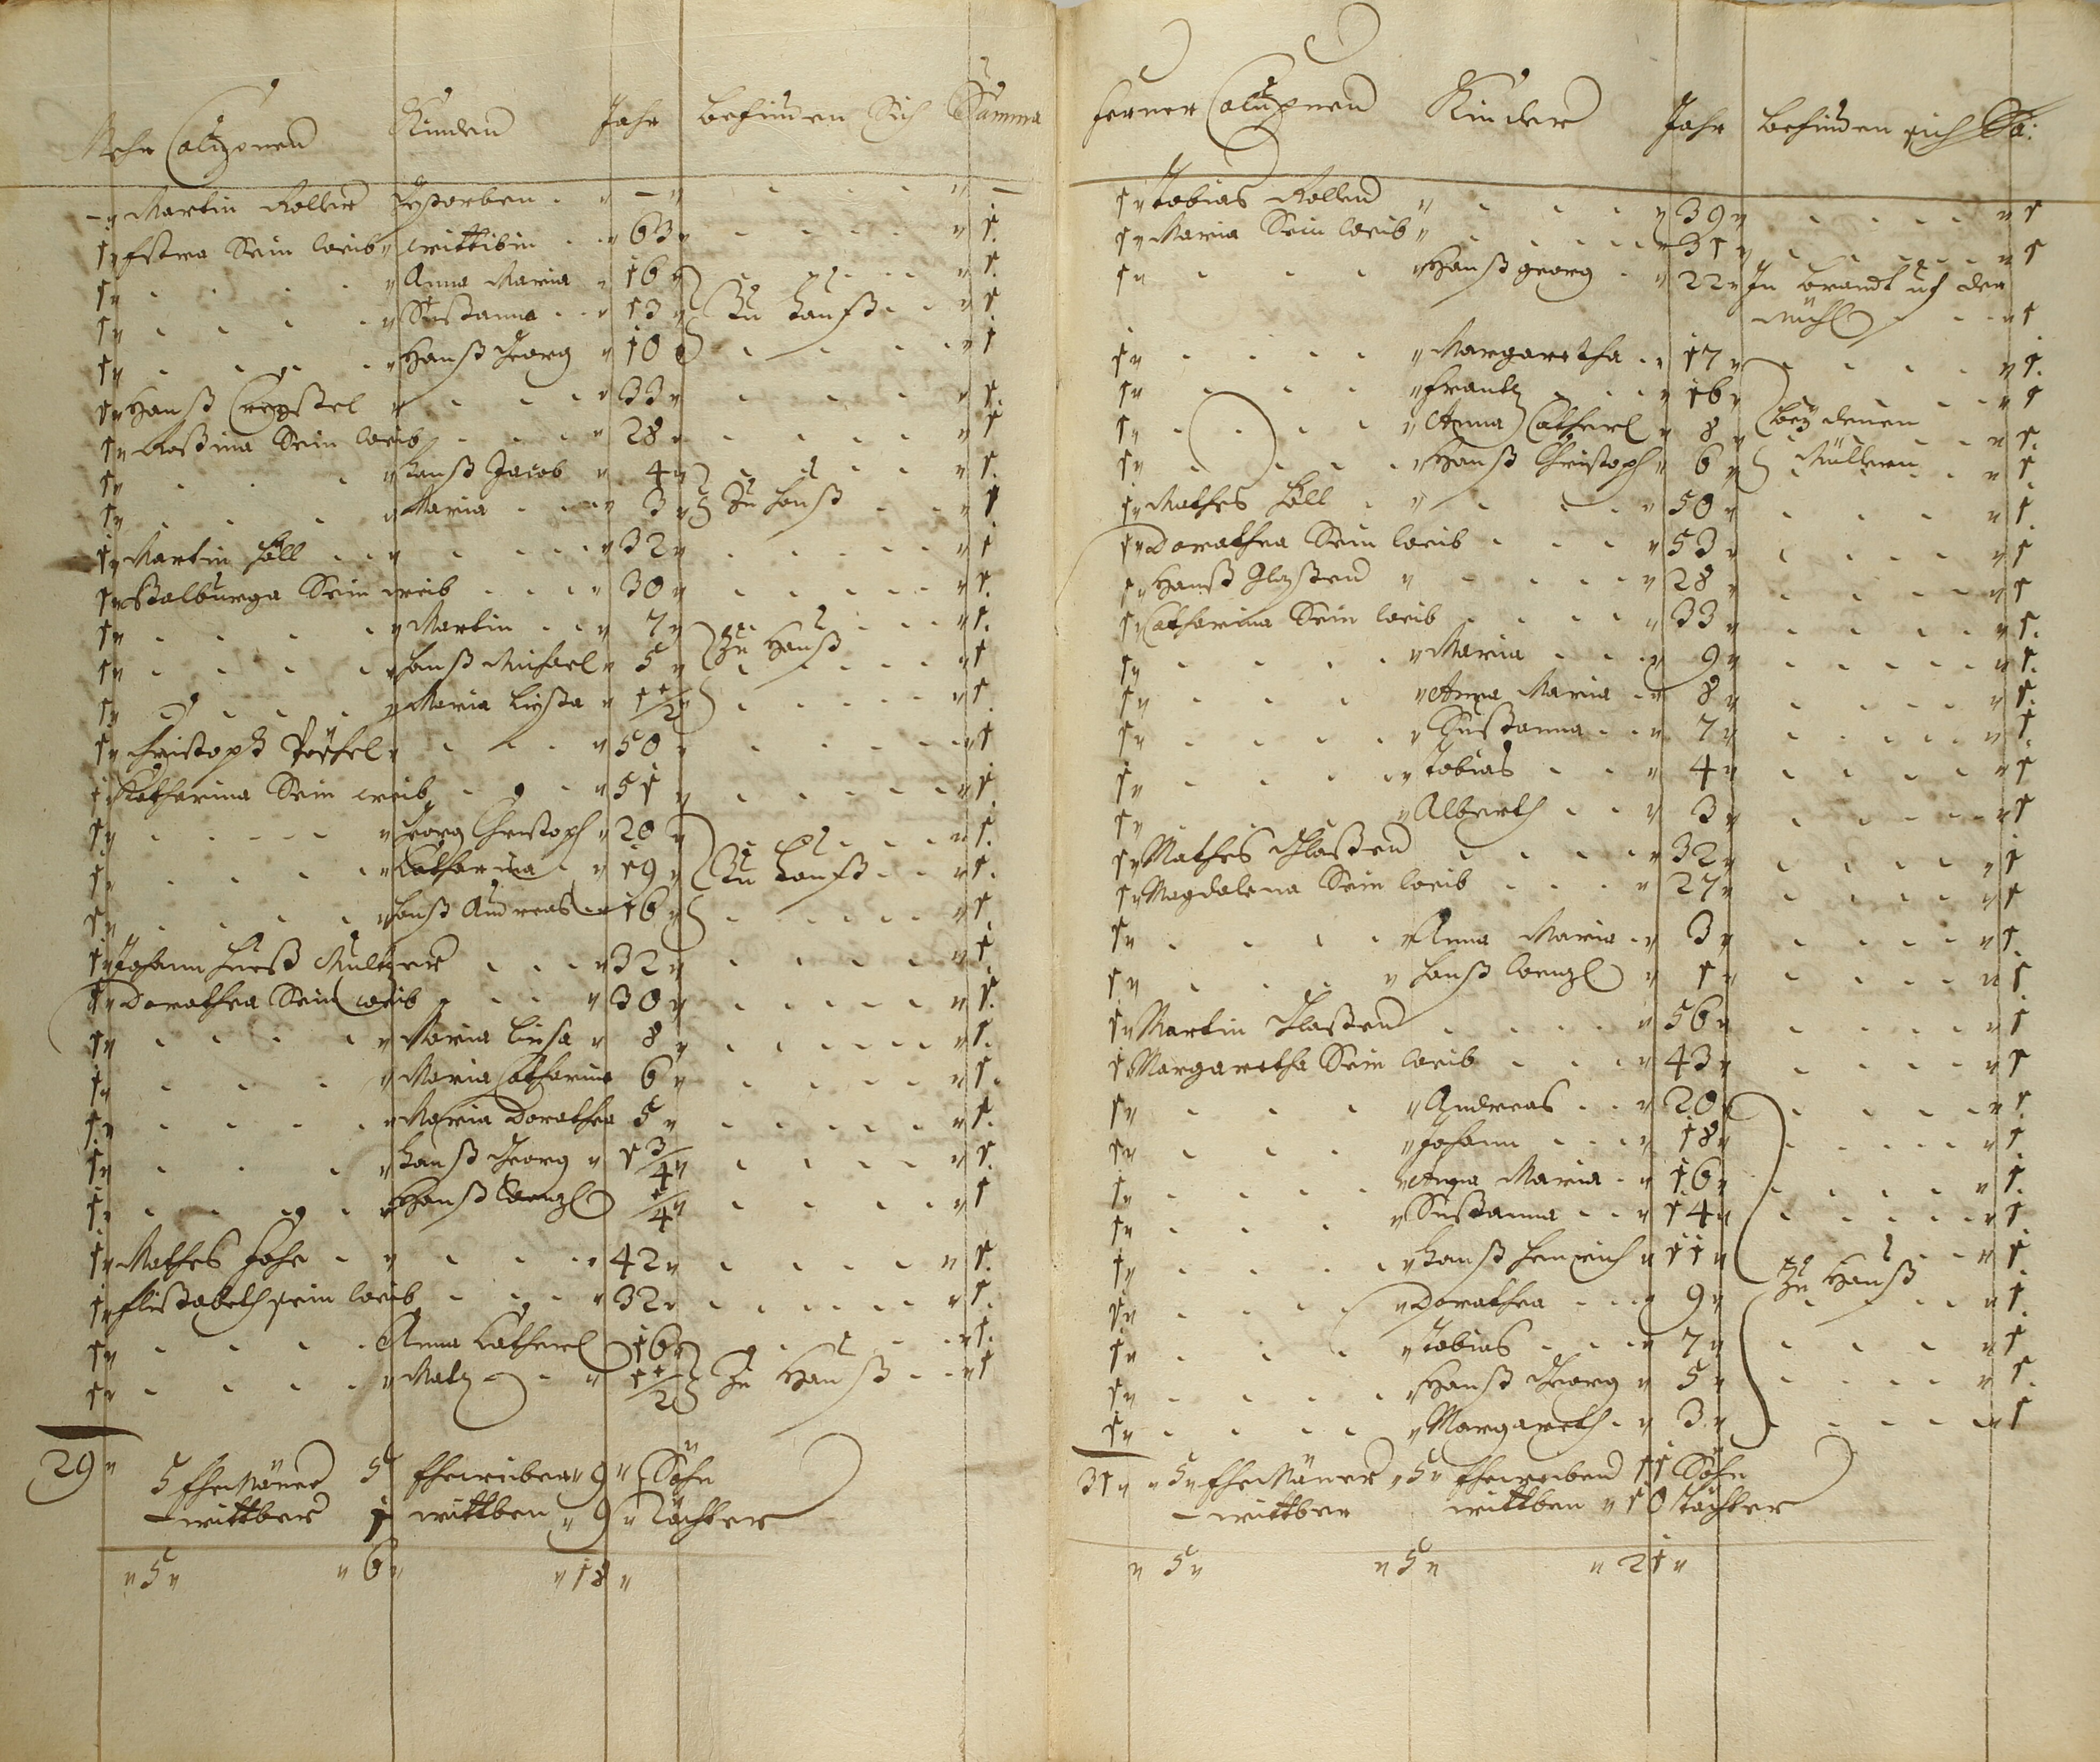 Mehr Caluponen Kinder Jahr befinden Sich Summa
- Martin Koller gestorben - -
1 Estra Sein weib wittibin 63 1
1 Anna Maria 16 1
1 Susanna 13 Zu Hauß 1
1 Hanß Georg 10 1
1 Hanß 33 1
1 Rosina Sein weib 28 1
1 Hanß Jacob 4 1
1 Maria 3 Zu Hauß 1
1 Martin Höll 32 1
1 Walburga Sein weib 30 1
1 Martin 7 1
1 Hanß Michael 5 Zu Hauß 1
1 Maria Liesa 1 1/2 1
1 Christoph 50 1
1 Catharina Sein weib 51 1
1 Georg Christoph 20 1
1 Catharina 19 Zu Hauß 1
1 Hanß Andreas 16 1
1 Johann 32 1
1 Dorathea Sein weib 30 1
1 Maria Liesa 8 1
1 Maria Catharina 6 1
1 Maria Dorathea 5 1
1 Hanß Georg 1 3/4 1
1 Hanß Wenzl 1/4 1
1 Mathes 42 1
1 Elisabeth sein weib 32 1
1 Anna Catherl 16 1
1 Matz 1 1/2 Zu Hauß 1
29 5 EheMäner 5 Eheweiber 9 Söhn
- wittber 1 wittben 9 Töchter
5 6 18
ferner Caluponen Kinder Jahr befinden sich Sa:
1 Tobias Koller 39 1
1 Maria Sein weib 31 1
1 Hanß georg 22 In brandt uf der
Mühl 1
1 Margaretha 17 1
1 Frantz 16 1
1 Anna Catherl 8 bey denen 1
1 Hanß Christoph 6 Müllnern 1
1 Mathes Höll 50 1
1 Dorathea Sein weib 53 1
1 Hanß 28 1
1 Catharina Sein weib 33 1
1 Maria 9 1
1 Anna Maria 8 1
1 Susanna 7 1
1 Tobias 4 1
1 Alberth 3 1
1 Mathes Glaßer 32 1
1 Magdalena Sein weib 27 1
1 Anna Maria 3 1
1 Hanß Wenzl 1 1
1 Martin Glaßer 56 1
1 Margaretha Sein weib 43 1
1 Andreas 20 1
1 Johann 18 1
1 Anna Maria 16 1
1 Susanna 14 1
1 Hanß Heinrich 11 1
1 Dorathea 9 Zu Hauß 1
1 Tobias 7 1
1 Hanß Georg 5 1
1 Margareth 3 1
31 5 EheMäner 5 Eheweiber 11 Söhn
- wittber wittben 10 Töchter
5 5 21